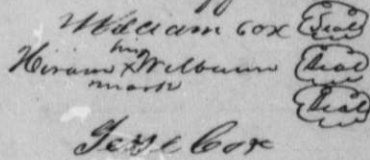 William Cox Seal
his
Hiram X Wilbourn Seal
mark
Seal
Jesse Cox